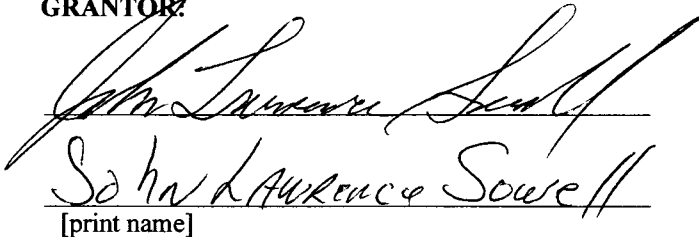 GRANTOR:
John Lawrence Sowell
John Lawrence Sowell
[print name]